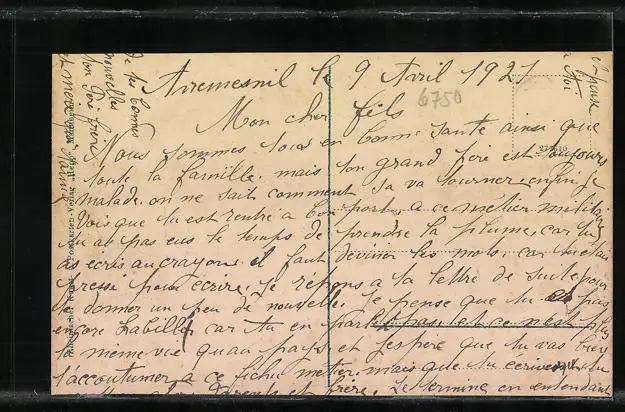 Arremesnil le 9 Avril 1921
6750
Mon cher fils
Nous sommes tous en bonne santé ainsi que
toute la famille. mais ton grand père est toujours
malade. on ne sait comment sa va tourner. enfin je
vois que tu est rentré a bon port a ce métier militaire
tu as pas eus le temps de prendre la plume, car tu
as écris au crayon. il faut deviner les mots. car tu étais
pressé pour écrire. je répons a ta lettre de suite pour
te donner un peu de nouvelle. Je pense que tu es pas
encore habillé car tu en parle pas. et ce n'est plus
la meme vie quau pays et j'espère que tu vas bien
t'accoutumer a ce fichu métier. mais que tu
parents et frère. Je termine en attendant
de tes bonnes
nouvelles
ton Père
a toi